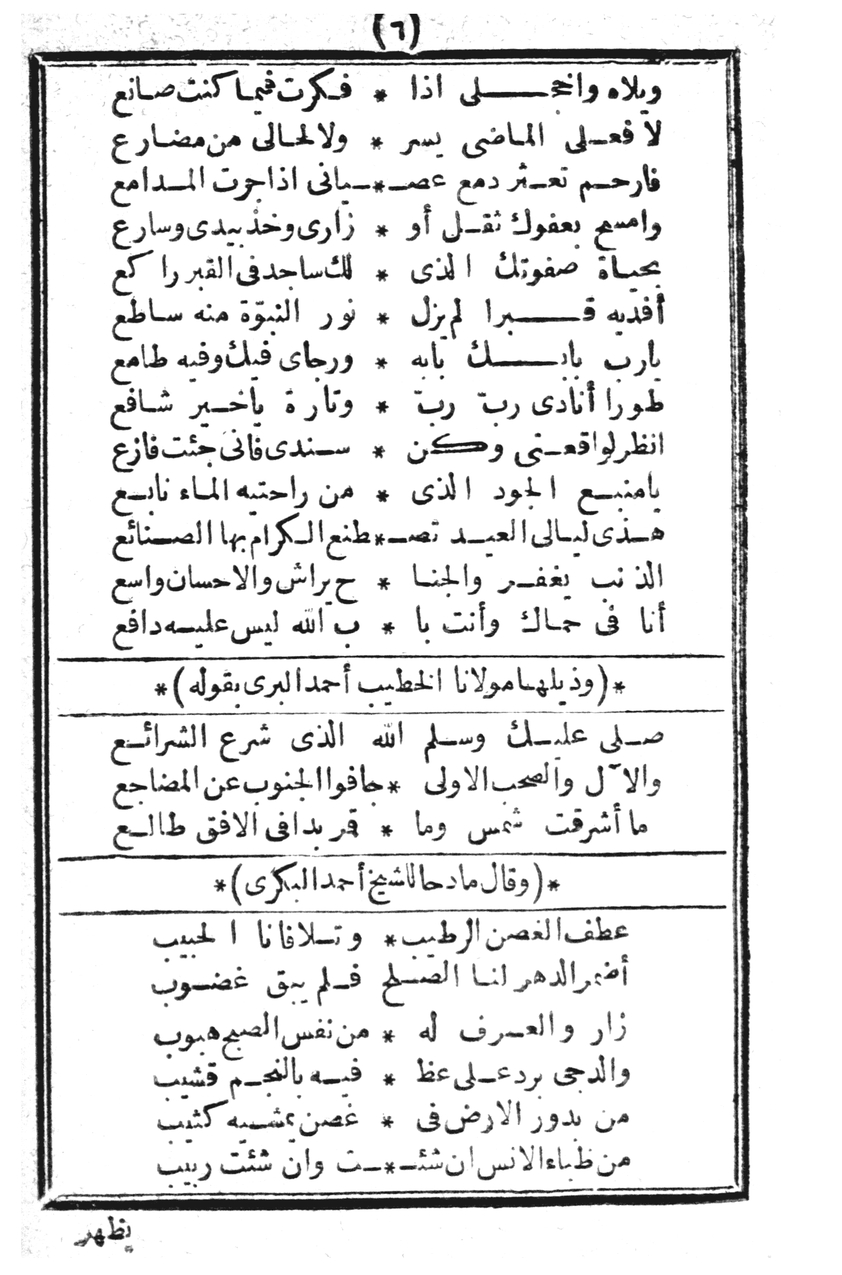 (٦)
ويلاه واخجلى اذا * فكرت فيما كنت صانع
لا فعلى الماضى يسر * ولا لحالى من مضارع
فارحم تعثر دمع عصـ*ـيانى اذا جرت المدامع
وامسح بعفوك ثقل أو * زارى وخذ بيدى وسارع
بحياة صفوتك الذى * لك ساجد فى القبر راكع
أفديه قبرا لم يزل * نور النبوّة منه ساطع
يارب بابك بابه * ورجاى فيك وفيه طامع
طورا أنادى ربّ ربّ * وتارة ياخير شافع
انظر لواقعتى وكن * سندى فانى جئت فازع
يامنبع الجود الذى * من راحتيه الماء نابع
هذى ليالى العيد تصـ*طنع الكرام بها الصنائع
الذنب يغفر والجنا * ح يراش والاحسان واسع
أنا فى حماك وأنت با * ب الله ليس عليه دافع
*(وذيلها مولانا الخطيب أحمد البرى بقوله)*
صلى عليك وسلم الله الذى شرع الشرائع
والآل والصحب الاولى * جافوا الجنوب عن المضاجع
ما أشرقت شمس وما * قمر بدا فى الافق طالع
*(وقال مادحا للشيخ أحمد البكرى)*
عطف الغصن الرطيب * وتلافانا الحبيب
أضمر الدهر لنا الصلح فلم يبق غضوب
زار والعرف له * من نفس الصبح هبوب
والدجى برد على عط * فيه بالنجم قشيب
من بدور الارض فى * غصن يمشيه كثيب
من ظباء الانس ان شئـ*ـت وان شئت ربيب
يظهر